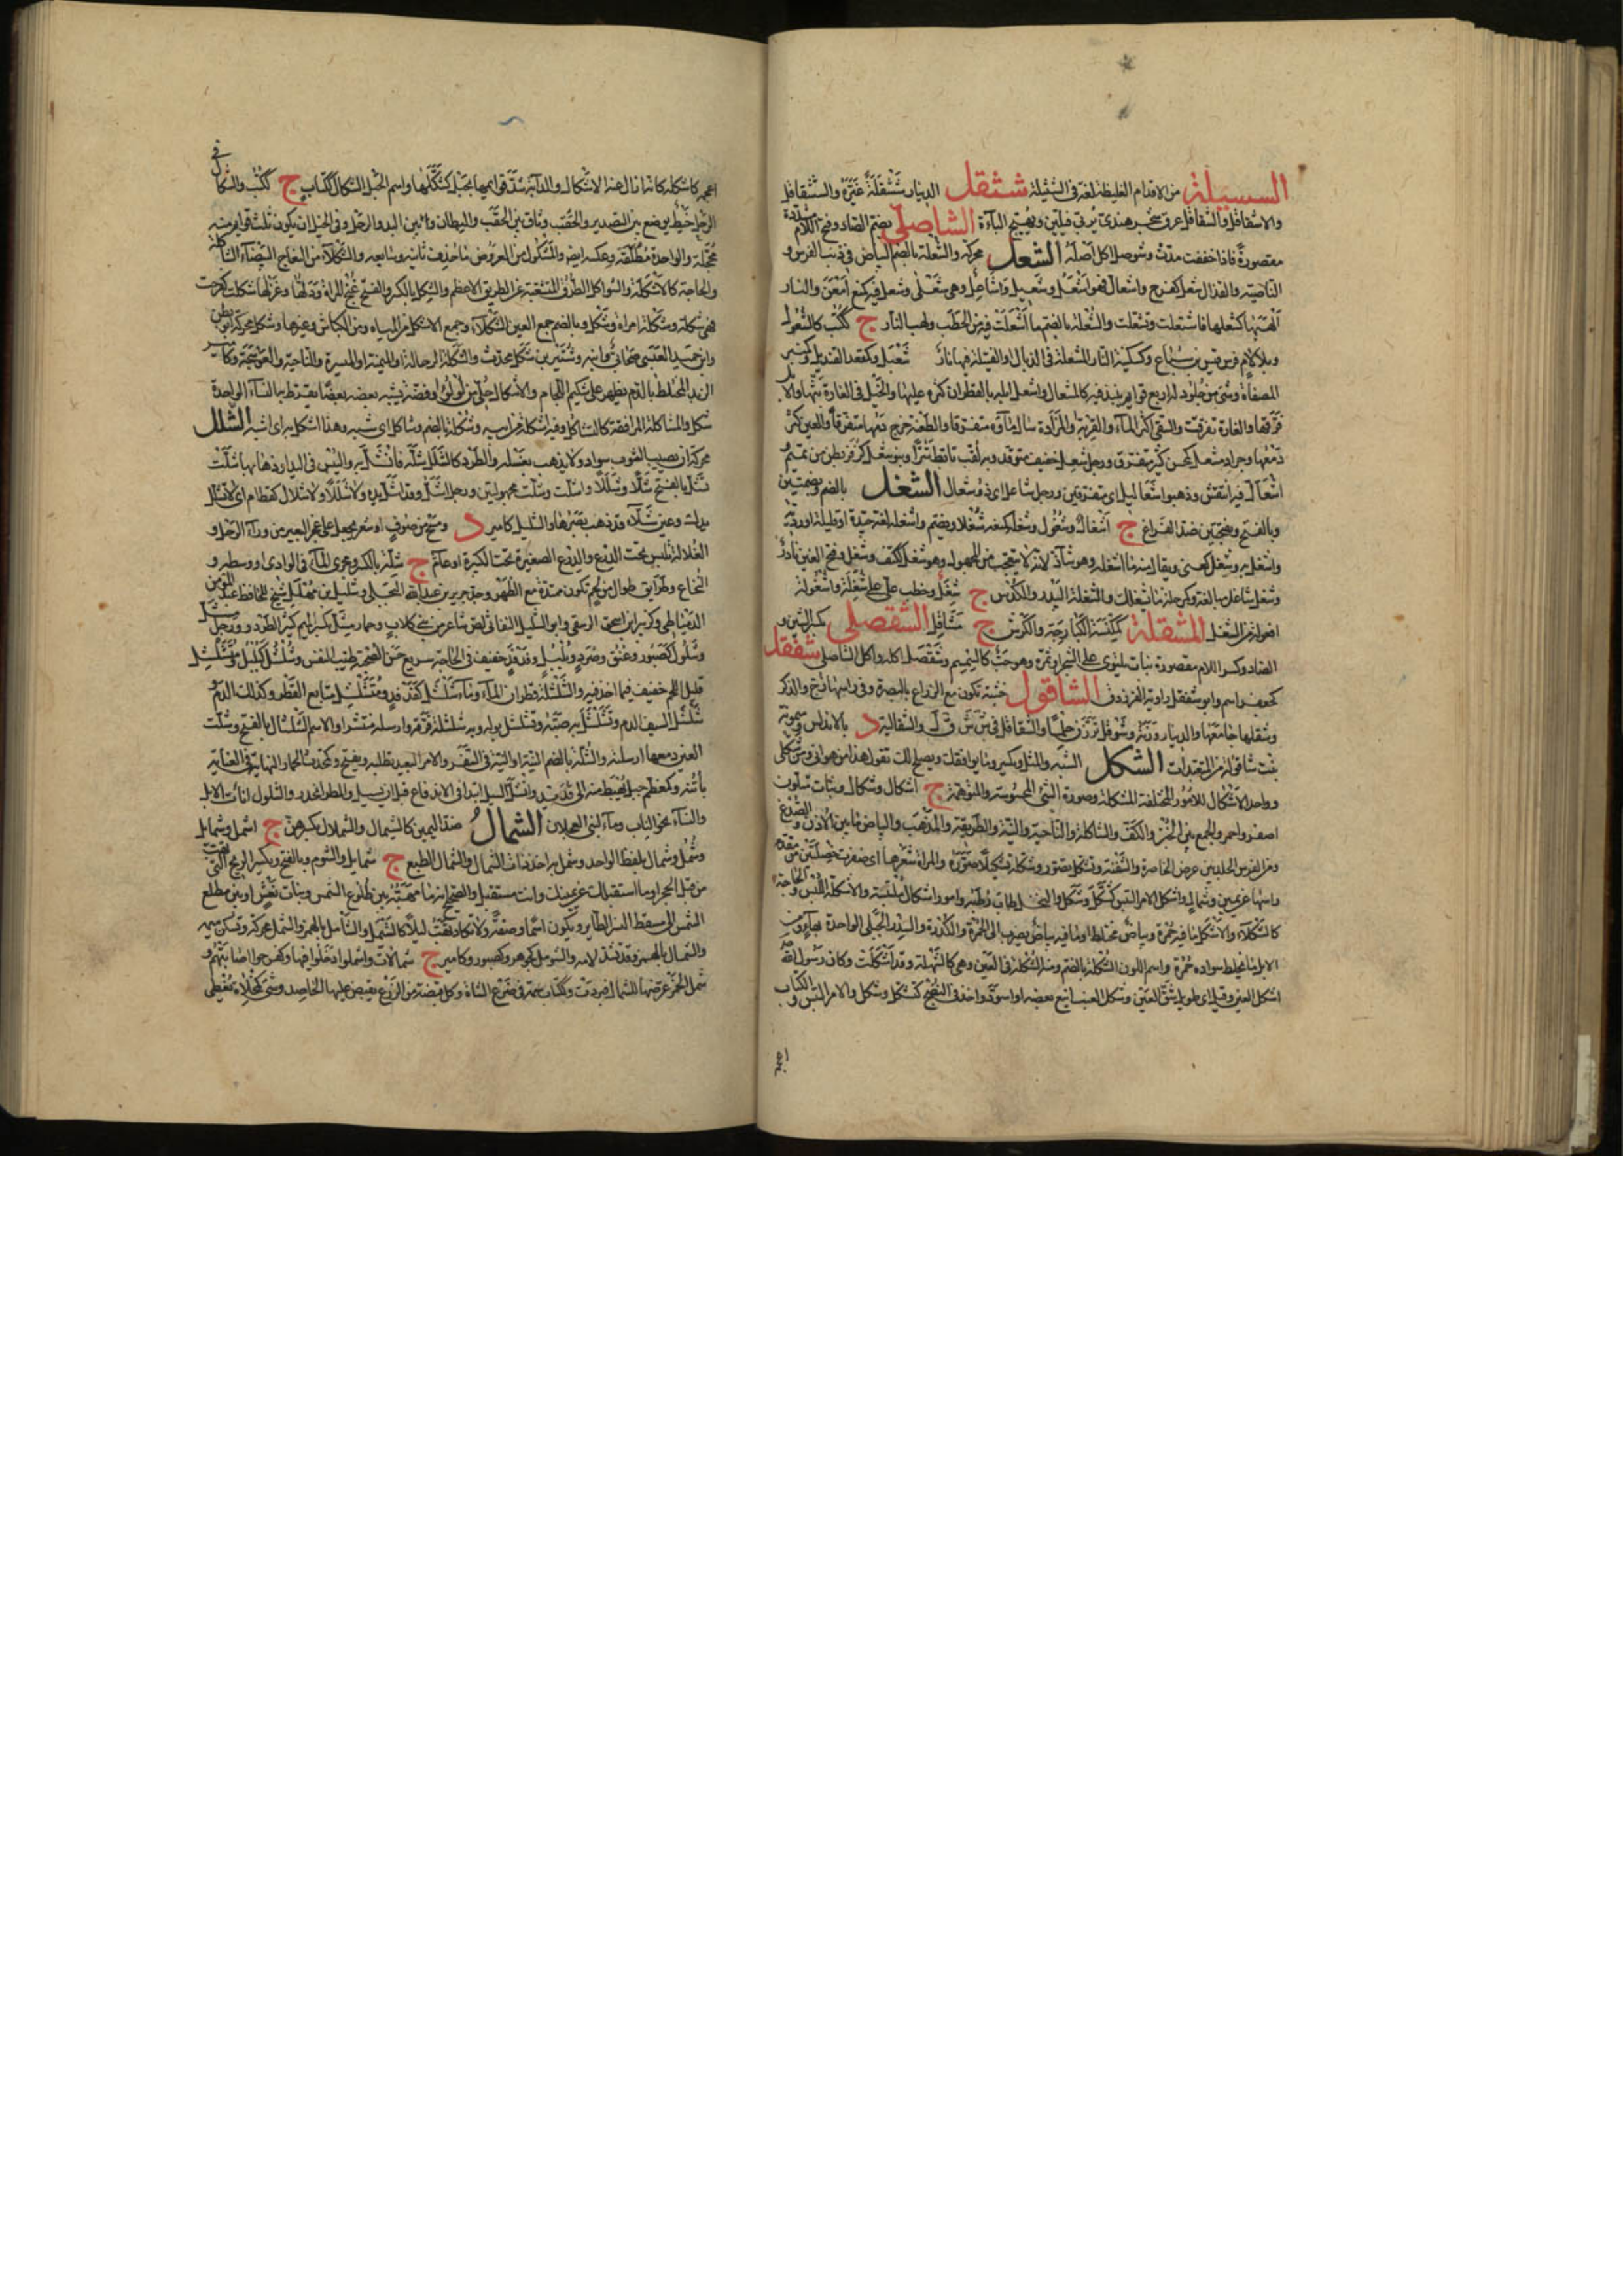 السبسلة من الاقدام الغليظة لغة فى الششلة ششقل الدينار ششقلة عيّره والششقاقل
والاشقاقل والشقاقل عرق شجر هندى يربى فيلين ويهيج الباءة الشاصلّى بضم الصاد وفتح اللام المشددة
مقصورة فاذا خففت مدّت وشوصل اكل اصله الشعل محركة والشعلة بالضم البياض فى ذنب الفرس و
الناصية والقذال شعل كفرح واشعال فهو اشعل وشعيل وشاعل وهى شعلى وشعل فيه كمنع امعن والنار
الهبها كشعلها فاشتعلت وتشعلت والشعلة بالضم ما اشعلت فيه من الحطب ولهب النار ج ككتب كالشعول
وبلا لام فرس قيس بن سباع وكسكينة النار المشعلة فى الذبال او الفتيلة فيها نار شعل وكمقعد القنديل وكمنبر
المصفاة وشىء من جلود له اربع قوائم ينبذ فيه كالمشعال واشعل ابله بالقطران كثره عليها والخيل فى الغارة بثها والابل
فرقها والغارة تفرقت والسقى اكثر الماء والقربة والمزادة سال ماؤه متفرقا والطعنة خرج دمها متفرقا والعين كثر
دمعها وجراد مشعل كمحسن كثير متفرق ورجل شعل خفيف متوقد وبه لقب تابط شرا وبنو شعل كزفر بطن من تميم
اشعال فيه انتفش وذهبوا شعاليل اى متفرقين ورجل شاعل اى ذو اشعال الشغل بالضم وبضمتين
وبالفتح وبفتحتين ضد الفراغ ج اشغال وشغول وشغله كمنعه شغلا ويضم واشغله لغة جيدة او قليلة او ردية
واشتغل به وشغل كعنى ويقال منه ما اشغله وهو شاذ لانه لا يتعجب من المجهول وهو شغل ككتف ومشتغل وفتح الغين نادر
وشغل شاغل مبالغة وكمرحلة ما يشغلك والشغلة البيدر والكدس ج شغل وخطب على على شغلة واشغولة
افعولة من الشغل المشفلة كمكنسة الكبارجة والكرش ج مشافل الشفصلى بكسر الشين و
الصاد وكسر اللام مقصورة نبات يلتوى على الشجر او ثمره وهو حب كالسمسم وشفصل اكله او اكل الشاصلى شفقل
كجعفر اسم وابو شفقل راوية الفرزدق الشاقول خشبة تكون مع الزراع بالبصرة وفى راسها زج والذكر
وشقلها جامعها والدينار وزنه وشوقل ترزن حلما والشقاقل فى ش ش ق ل والشقالية د بالاندلس وميمونة
بنت شاقولة من المتعبدات الشكل الشبه والمثل ويكسر وما يوافقك ويصلح لك تقول هذا من هواى ومن شكلى
وواحد الاشكال للامور المختلفة المشكلة وصورة الشىء المحسوسة والمتوهمة ج اشكال وشكول ونبات متلون
اصفر واحمر والجمع بين الخبن والكف والشاكلة والناحية والنية والطريقة والمذهب والبياض ما بين الاذن والصدغ
ومن الفرس الجلد بين عرض الخاصرة والثفنة وتشكل تصور وشكله تشكيلا صوره والمراة شعرها اى ضفرت خصلتين من مقدم
راسها عن يمين وشمال واشكل الامر التبس كشكل وشكل والنخل طاب رطبه وامور اشكال ملتبسة والاشكلة اللبس والحاجة
كالشكلاء والاشكل ما فيه حمرة وبياض مختلط او ما فيه بياض يضرب الى الحمرة والكدرة والسدر الجبلى الواحدة بهاء ومن
الابل ما يخلط سواده حمرة واسم اللون الشكلة بالضم ومنه الشكلة فى العين وهى كالشهلة وقد اشكلت وكان رسول الله
اشكل العين وقيل اى طويل شق العين وشكل العنب اينع بعضه او اسود واخذ فى النضج كتشكل وشكل والامر التبس والكتاب
اعجمه
اعجمه كاشكله كانه ازال عنه الاشكال والدابة شد قوائمها بحبل كشكلها واسم الحبل الشكال ككتاب ج ككتب والشكال فى
الرحل خيط يوضع بين التصدير والحقب وثاق بين الحقب والبطان وما بين اليد والرجل وفى الخيل ان يكون ثلث قوائم منه
محجلة والواحدة مطلقة وعكسه ايضا والمشكول من العروض ما حذف ثانيه وسابعه والشكلاء من النعاج البيضاء الشاكلة
والحاجة كالاشكلة والشواكل الطرق المتشعبة عن الطريق الاعظم والشكل بالكسر والفتح غنج المراة ودلها وغزلها شكلت كفرحت
فهى شكلة وشكلة امراة وشكل وبالضم جمع العين الشكلاء وجمع الاشكل من المياه ومن الكباش وغيرها وشكل محركة ابو بطن
وابن حميد العبسى صحابى وابنه وشتير بن شكل محدث والشكلة الرحالة او الميمنة او الميسرة والناحية والعوسجة وكامير
الزبد المختلط بالدم يظهر على شكيم اللجام والاشكال حلى من لؤلؤ او فضة يشبه بعضه بعضا يقرط به النساء الواحدة
شكل والمشاكلة الموافقة كالتشاكل وفيه اشكلة من ابيه وشكلة بالضم وشاكل اى شبه وهذا اشكل به اى اشبه الشلل
محركة ان يصيب الثوب سواد ولا يذهب بغسله والطرد كالشل شله فانشل به واليبس فى اليد او ذهابها شلت
تشل بالفتح شلا وشللا واشلت وشلت مجهولتين ورجل اشل وقد اشل يده ولا شللا ولا شلال كقطام اى لا تشلل
يدك وعين شلاء قد ذهب بصرها والشليل كامير د ومسح من صوف او شعر يجعل على عجز البعير من وراء الرحل و
الغلالة تلبس تحت الدرع والدرع الصغيرة تحت الكبيرة او عام ج شلة بالكسر ومجرى الماء فى الوادى او وسطه و
النخاع وطرائق طوال من لحم تكون ممتدة مع الظهر وجد جرير بن عبد الله البجلى وشليل بن مهلهل شيخ للحافظ عبد المؤمن
الدمياطى وكزبير ابن اسحق الزينبى وابو الشليل النفاثى لص شاعر من بنى كلاب وحمار مشل بكسر الميم كثير الطرد ورجل
وشلول كصبور وعنق وصرد وبلبل وفدفد خفيف فى الحاجة سريع حسن الصحبة طيب النفس وشلشل كبلبل ومتشلشل
قليل اللحم خفيف فيما اخذ فيه والشلشلة قطران الماء وماء شلشل كفدفد ومتشلشل متتابع القطر وكذلك الدم
شلشل السيف الدم وتشلشل به صبّه وشلشل بوله وبه شلشلة فرقه وارسله منتشرا والاسم الشلشال بالفتح وشلت
العين دمعها ارسلته والشلة بالضم النية او النية فى السفر والامر البعيد تطلبه ويفتح وكمحدث الحمار النهاية فى العناية
باتنه وكمعظم جبل يهبط منه الى قديد وانشل السيل ابتدا فى الاندفاع قبل ان يسيل والمطر انحدر والشلول اناث الابل
والنساء نحو الناب وماء لبنى العجلان الشمال ضد اليمين كالشيمال والشملال بكسرهن ج اشمل وشمايل
وشمل وشمال بلفظ الواحد وشمل به اخذ ذات الشمال والشمال الطبع ج شمايل والشوم وبالفتح ويكسر الريح التى تهب
من قبل الحجر او ما استقبلك عن يمينك وانت مستقبل والصحيح انه ما مهبّه بين مطلع الشمس وبنات نعش او بين مطلع
الشمس الى مسقط النسر الطاير ويكون اسما وصفة ولا تكاد تهب ليلا كالشيمل والشأمل بالهمز والشمل محركة وتسكن ميمه
والشمأل بالهمز وقد تشد لامه والشومل كجوهر وكصبور وكامير ج شمالات واشملوا دخلوا فيها وكفرحوا اصابتهم و
شمل الخمر عرضها للشمال فبردت وككتاب سمة فى ضرع الشاة وكل قبضة من الزرع يقبض عليها الحاصد وشىء كمخلاة يغطى